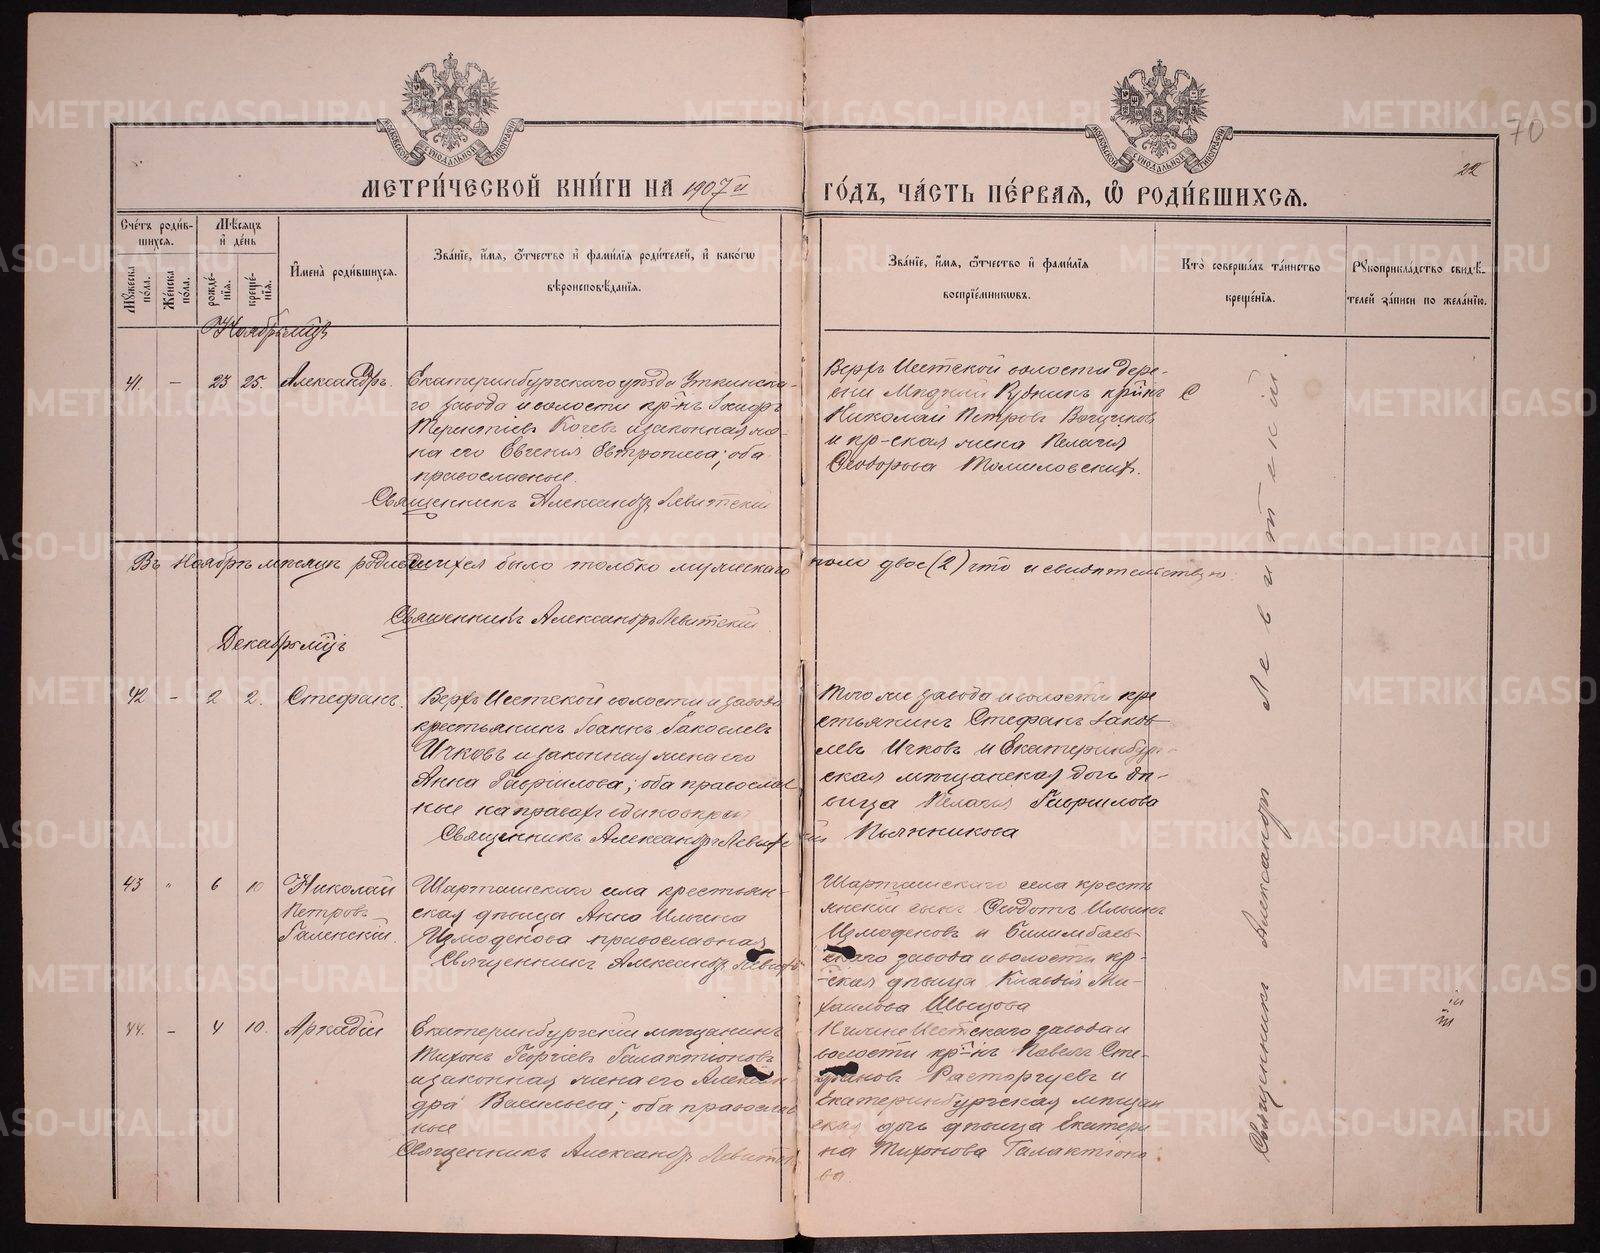 70
22
МЕТРИ́ЧЕСКОЙ КНИ́ГИ НА 1907 й ГО́ДЪ, ЧА́СТЬ ПЕ́РВАЯ, Ѿ РОДИ́ВШИХСЯ.
Сче́тъ роди́в-
шихся.
Мꙋжеска по́ла.
Же́нска по́ла.
Мѣ́сяцъ и҆ де́нь
рожде́-
нїя.
креще́-
нїя.
И҆мена̀ роди́вшихся.
Зва́нїе, и҆́мя, ѻ҆́тчество и҆ фами́лїя роди́телей, и҆ како́гѡ
вѣроисповѣ́данїя.
Зва́нїе, и҆́мя, ѻ҆́тчество и҆ фами́лїя
воспрїе́мникѡвъ.
Кто̀ соверша́лъ та́инство
креще́нїя.
Рꙋкоприкла́дство свидѣ́-
телей за́писи по жела́нїю.
Ноябрь мцъ
41.
–
23
25.
Александръ.
Екатеринбургскаго уѣзда Уткинска-
го завода и волости кр-нъ
Терентіевъ и законная же-
на его Евгенія Евтропіева; оба
православные.
Священникъ Александръ Левитскій
Верхъ Исетской волости дере-
вни Мѣдный Рудникъ
Николай Петровъ
и кр-ская жена Пелагія
Ѳеодорова Томиловскихъ.
Въ Ноябрѣ мѣсяцѣ родившихся было только мужескаго
пола двое (2) что и свидѣтельствую.
Священникъ Александръ Левитскій
Декабрь мцъ
42
–
2
2.
Стефанъ.
Верхъ Исетской волости и завода
крестьянинъ Іоаннъ Іаковлевъ
Ичковъ и законная жена его
Анна Гавріилова; оба православ
ные на правахъ единовѣрія
Священникъ Александръ Левитскій
Того же завода и волости кре
стьянинъ Стефанъ Іаков-
левъ Ичковъ и Екатеринбург-
ская мѣщанская дочь дѣ-
вица Пелагія Гавріилова
Пьянникова
43
"
6
10
Николай
Петровъ
Галенскій.
Шарташскаго села крестьян-
ская дѣвица Анна Ильина
Измоденова православная
Священникъ Александръ
Шарташскаго села кресть
янскій сынъ Ѳеодотъ Ильинъ
Измоденовъ и Билимбаев-
скаго завода и волости кр-
ская дѣвица Клавдія Ми-
хаилова Швецова
44.
–
4
10.
Аркадій
Екатеринбургскій мѣщанинъ
Тихонъ Георгіевъ Галактіоновъ
и законная жена его Алексан
дра Васильева; оба православ
ные
Священникъ Александръ Левитск
Нижне Исетскаго завода и
волости кр-нъ Павелъ Сте-
фановъ Расторгуевъ и
Екатеринбургская мѣщан
ская дочь дѣвица Екатери
на Тихонова Галактіоно
ва.
Священникъ Александръ Левитскій
METRIKI.GASO-URAL.RU